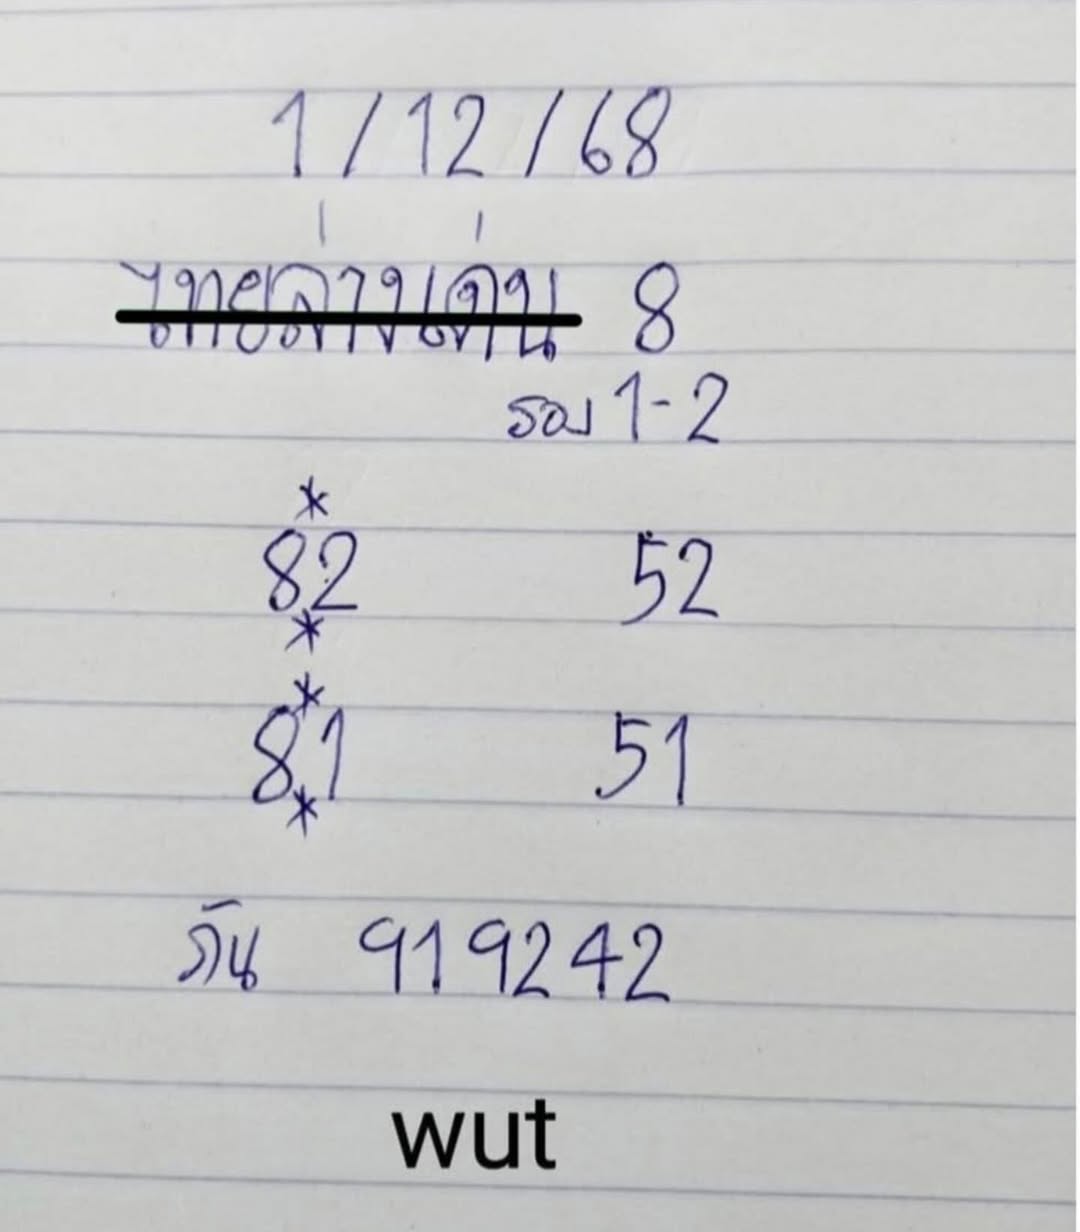 1/12/68
ไทยล่างเด่น 8
รอง 1-2
*
82 52
*
*
81 51
*
กัน 919242
wut